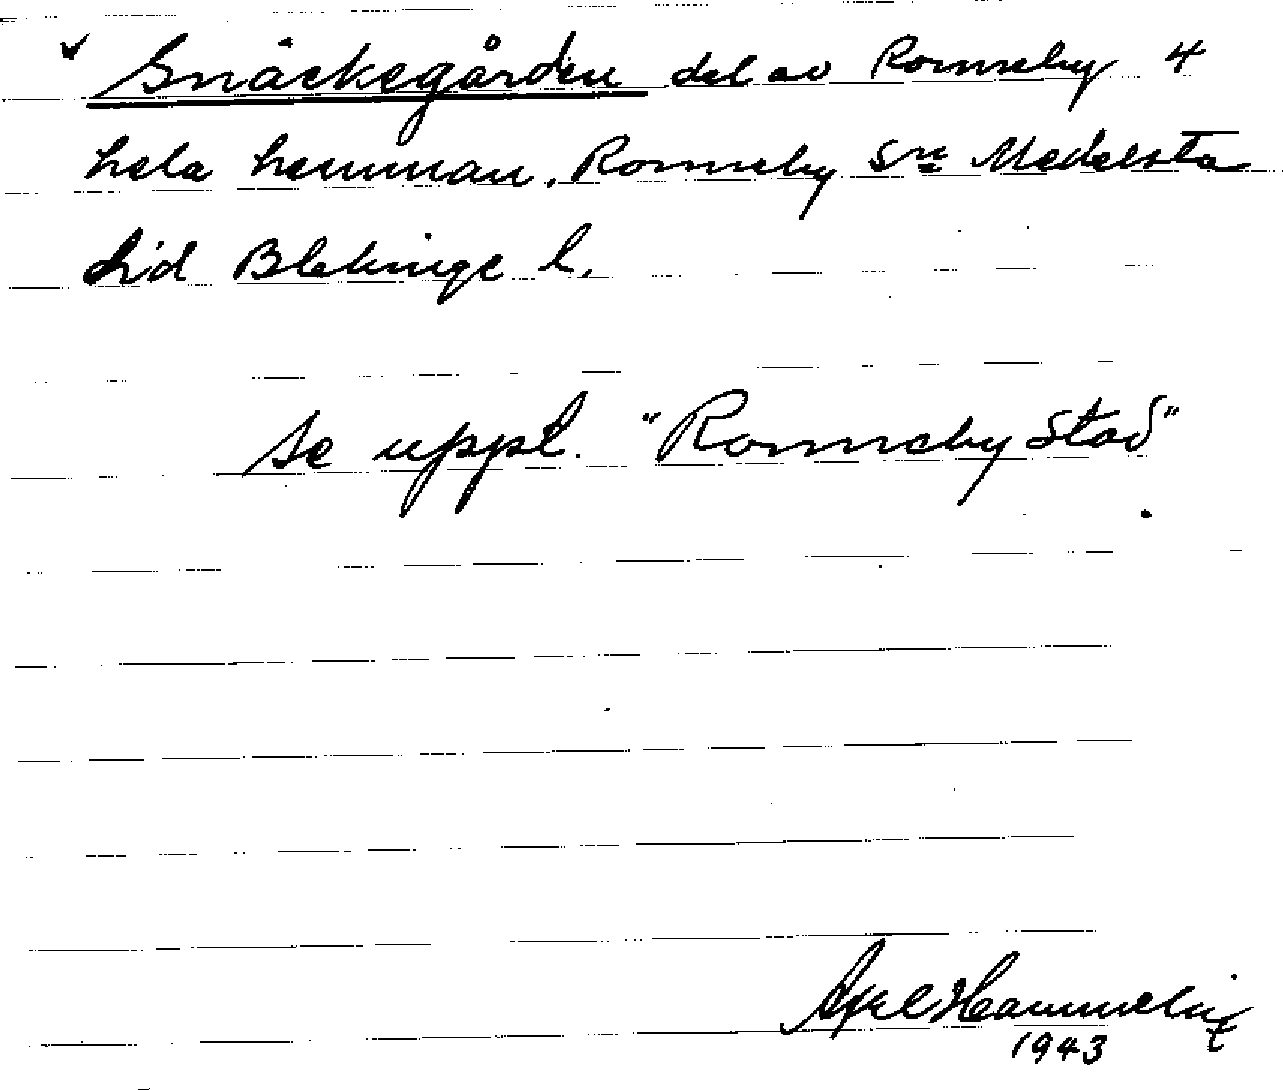 Snäckegården del av Ronneby 4
hela hemman. Ronneby sn Medelsta
h:d Blekinge l.
se uppl. "Ronneby stad"
Axel Hammelin
1943